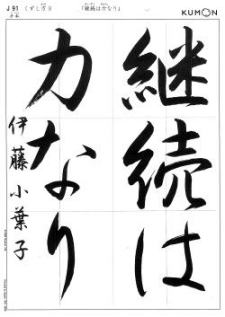 J 91
くずし方 8
「継続は力なり」
KUMON
継続は
力なり
伊藤小葉子